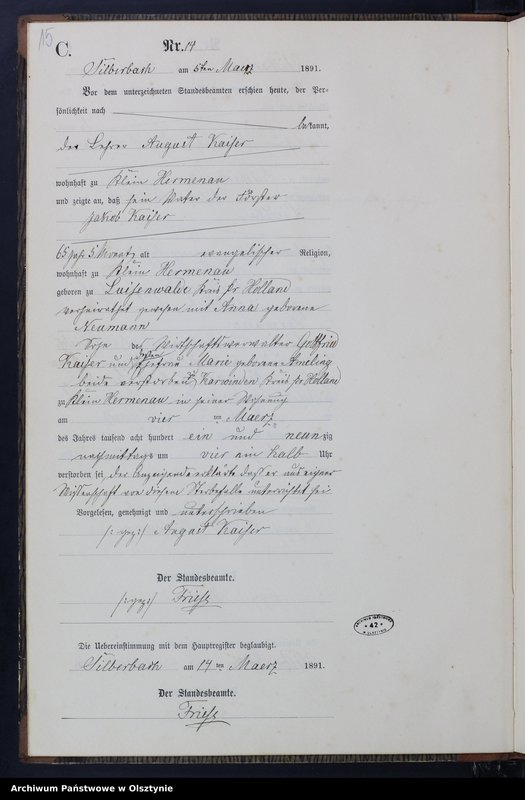 15
C.
Nr. 14
Silberbach am 5ten Maerz 1891.
Vor dem unterzeichneten Standesbeamten erschien heute, der Per-
sönlichkeit nach
bekannt,
der Lehrer August Kaiser
wohnhaft zu Klein Hermenau
und zeigte an, daß sein Vater der Förster
Jakob Kaiser
65 Jahr 5 Monate alt evangelischer Religion,
wohnhaft zu Klein Hermenau
geboren zu Luisenwalde Kreis Pr Holland
verheirathet gewesen mit Anna geborene
Neumann
Sohn des Wirthschaftsverwalter Gottfried
Kaiser und dessen Ehefrau Marie geborene Ameling
beide verstorben Karwinden Kreis Pr Holland
zu Klein Hermenau in seiner Wohnung
am vier ten Maerz
des Jahres tausend acht hundert ein und neunzig
nachmittags um vier ein halb Uhr
verstorben sei der Anzeigende erklärte daß er aus eigner
Wissenschaft von diesem Sterbefalle unterrichtet sei
Vorgelesen, genehmigt und unterschrieben
/: gez :/ August Kaiser
Der Standesbeamte.
/: gez :/ Friese
Die Uebereinstimmung mit dem Hauptregister beglaubigt.
Silberbach am 14 ten Maerz 1891.
Der Standesbeamte.
Friese
* 42 *
Archiwum Państwowe w Olsztynie